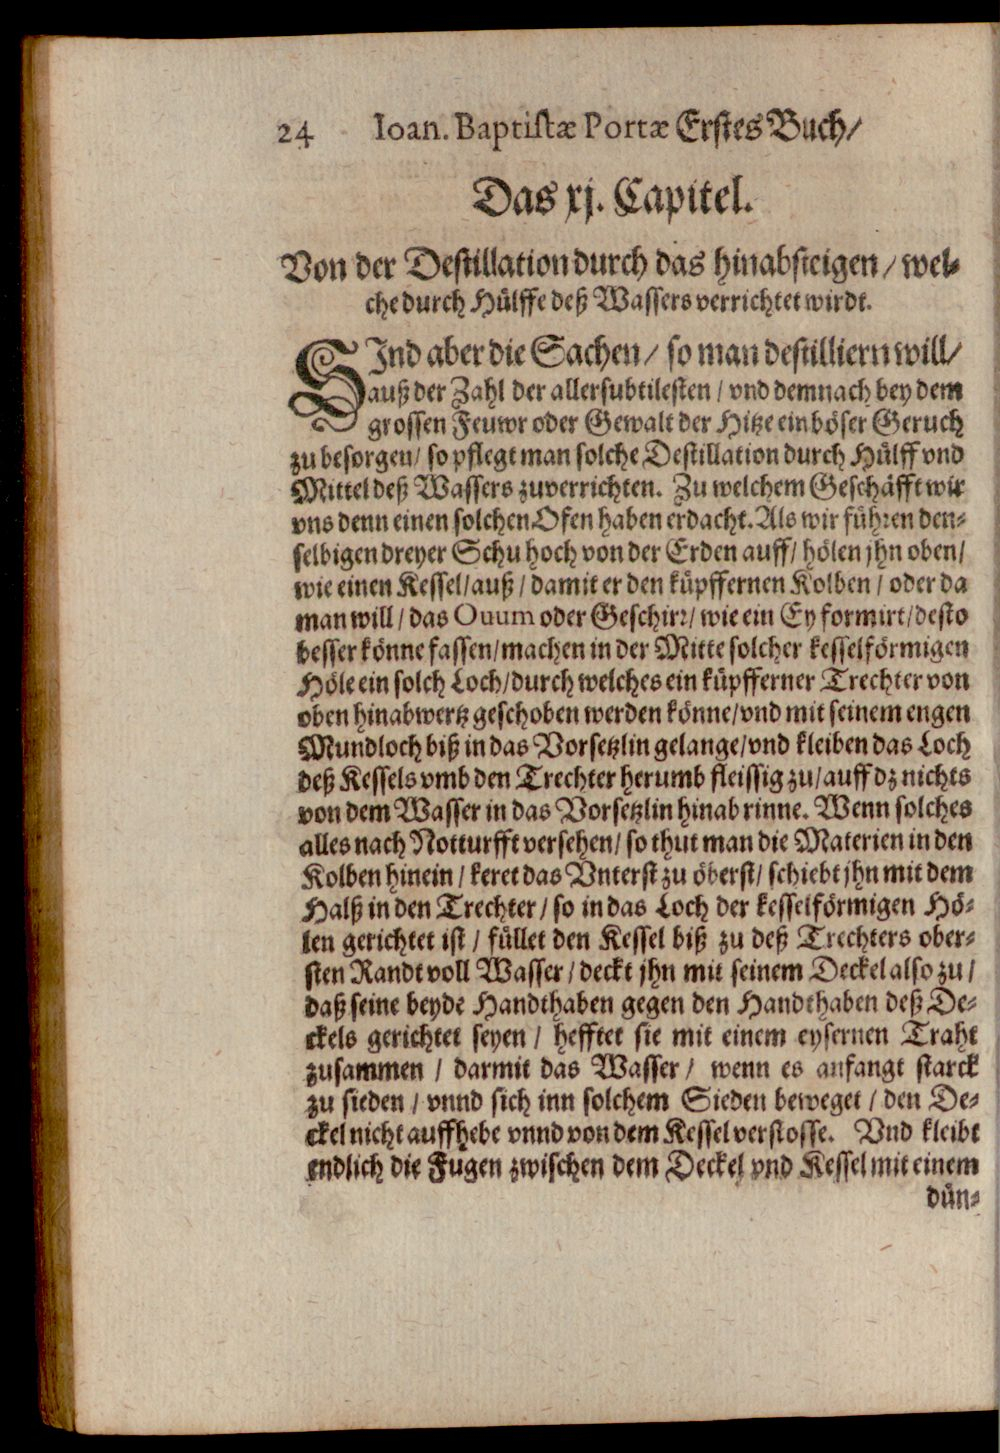 24 Ioan. Baptistæ Portæ Erstes Buch/
Das xj. Capitel.
Von der Destillation durch das hinabsteigen/ wel-
che durch Hülffe deß Wassers verrichtet wirdt.
SInd aber die Sachen/ so man destilliern will/
auß der Zahl der allersubtilesten/ vnd demnach bey dem
grossen Feuwr oder Gewalt der Hitze ein böser Geruch
zu besorgen/ so pflegt man solche Destillation durch Hülff vnd
Mittel deß Wassers zuverrichten. Zu welchem Geschäfft wir
vns denn einen solchen Ofen haben erdacht. Als wir führen den-
selbigen dreyer Schu hoch von der Erden auff/ hölen jhn oben/
wie einen Kessel/ auß/ damit er den küpffernen Kolben/ oder da
man will/ das Ouum oder Geschirr/ wie ein Ey formirt/ desto
besser könne fassen/ machen in der Mitte solcher kesselförmigen
Höle ein solch Loch/ durch welches ein küpfferner Trechter von
oben hinabwertz geschoben werden könne/ vnd mit seinem engen
Mundloch biß in das Vorsetzlin gelange/ vnd kleiben das Loch
deß Kessels vmb den Trechter herumb fleissig zu/ auff dz nichts
von dem Wasser in das Vorsetzlin hinab rinne. Wenn solches
alles nach Notturfft versehen/ so thut man die Materien in den
Kolben hinein/ keret das Vnterst zu öberst/ schiebt jhn mit dem
Halß in den Trechter/ so in das Loch der kesselförmigen Hö-
len gerichtet ist/ füllet den Kessel biß zu deß Trechters ober-
sten Randt voll Wasser/ deckt jhn mit seinem Deckel also zu/
daß seine beyde Handthaben gegen den Handthaben deß De-
ckels gerichtet seyen/ hefftet sie mit einem eysernen Traht
zusammen/ darmit das Wasser/ wenn es anfangt starck
zu sieden/ vnnd sich inn solchem Sieden beweget/ den De-
ckel nicht auffhebe vnnd von dem Kessel verstosse. Vnd kleibt
endlich die Fugen zwischen dem Deckel vnd Kessel mit einem
dün-